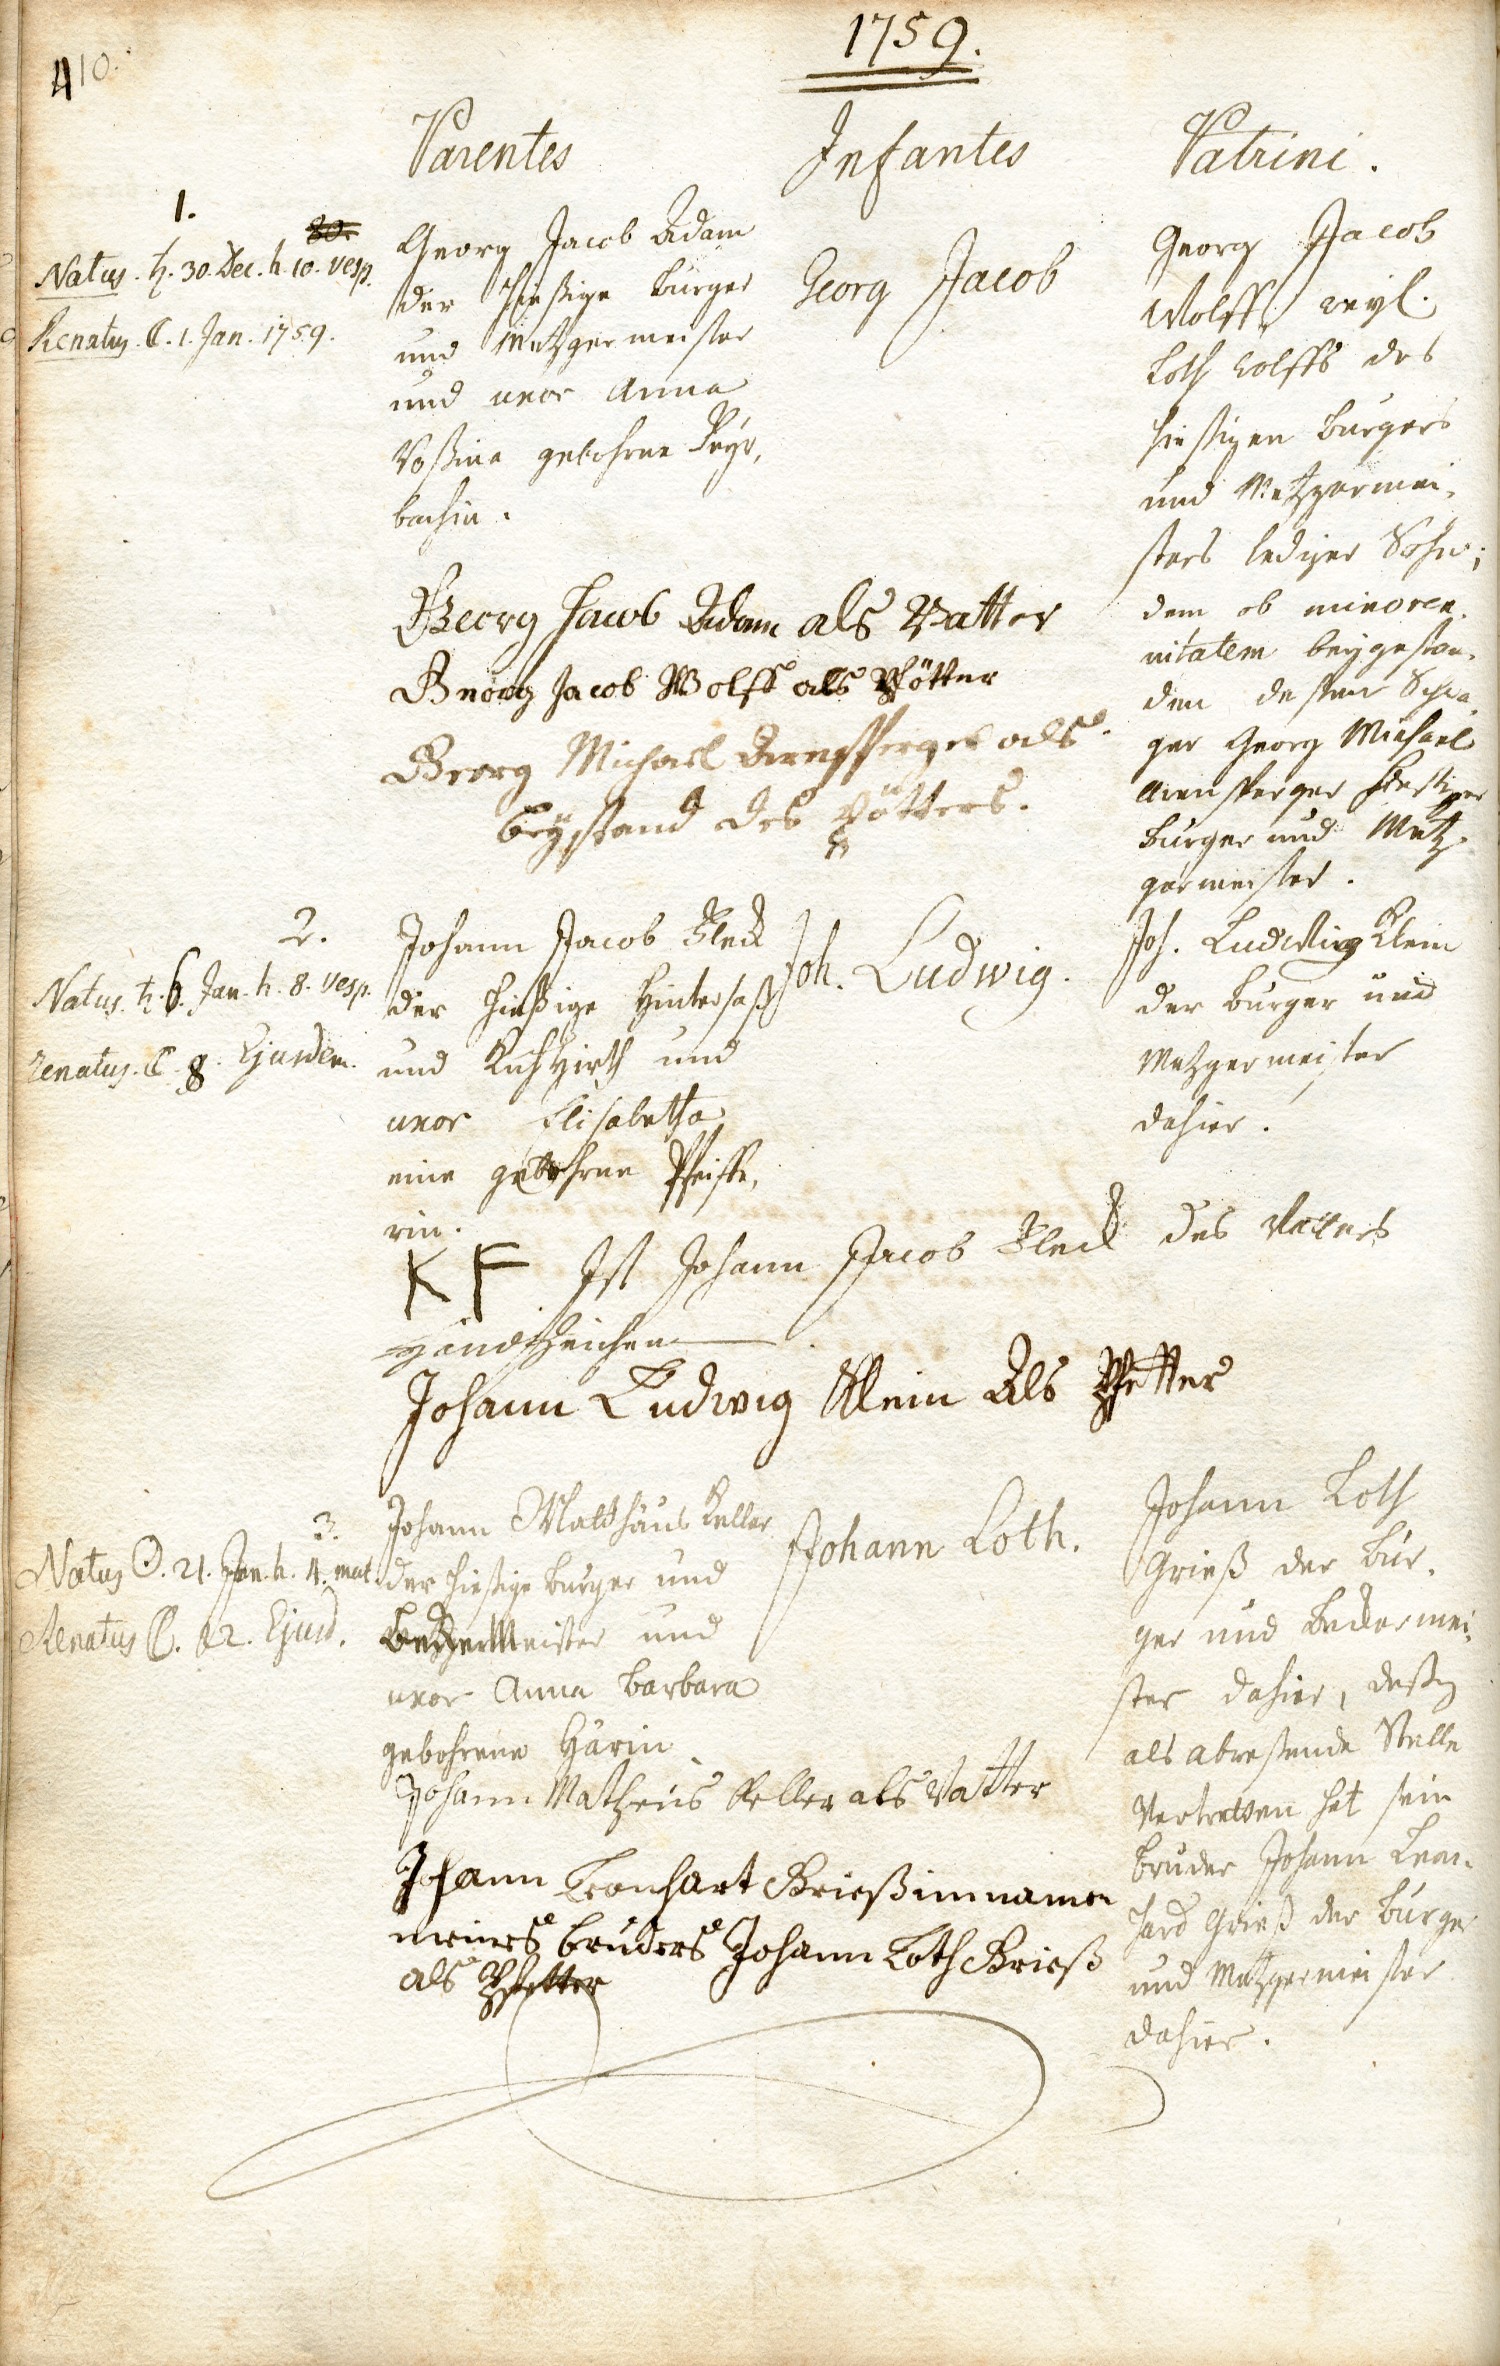 1759.
410.
Parentes
Infantes
Patrini.
1.
Natus. ♄. 30. Dec. h. 10. vesp.
Renatus. ☾. 1. Jan. 1759.
Georg Jacob Adam
der hießige burger
und Metzgermeister
und uxor Anna
Roßina gebohrne Feyr,
bachin.
Georg Jacob
Georg Jacob
Wolff, weyl.
Loth Wolffs des
hießigen burgers
und Metzgermei-
sters lediger Sohn;
dem ob minoren-
nitatem beygestan-
den deßen Schwa-
ger Georg Michael
Arensperger hießiger
burger und Metz-
germeister.
Georg Jacob Adam als Vatter
Georg Jacob Wolff als Pfötter
Georg Michael Arnsperger als
beystand des Pfötters.
2.
Natus. ♄. 6. Jan. h. 8. vesp.
renatus. ☾. 8. Ejusdem.
Johann Jacob Fleck
der hießige Hintersaß
und Kuh Hirth und
uxor Elisabetha
eine gebohrne Pfeiffe,
rin.
Joh. Ludwig.
Joh. Ludwig Klein
der burger und
Metzgermeister
dahier.
K F Ist Johann Jacob Fleck des Vatters
Handzeichen
Johann Ludwig Klein Als Pfetter
3.
Natus ☉. 21. Jan. h. 4. mat.
Renatus ☾. 22. Ejusd.
Johann Matthäus Keller
der hießige burger und
Beckermeister und
uxor Anna barbara
gebohrene Härin
Johann Loth.
Johann Loth
Grieß der bur-
ger und beckermei-
ster dahier, deßen
als abweßende Stelle
Vertretten hat sein
bruder Johann Leon-
hard Grieß der burger
und Metzgermeister
dahier.
Johann Matheus Keller als Vatter
Johann Leonhart Grieß im namen
meines bruders Johann Loth Grieß
als Pfetter